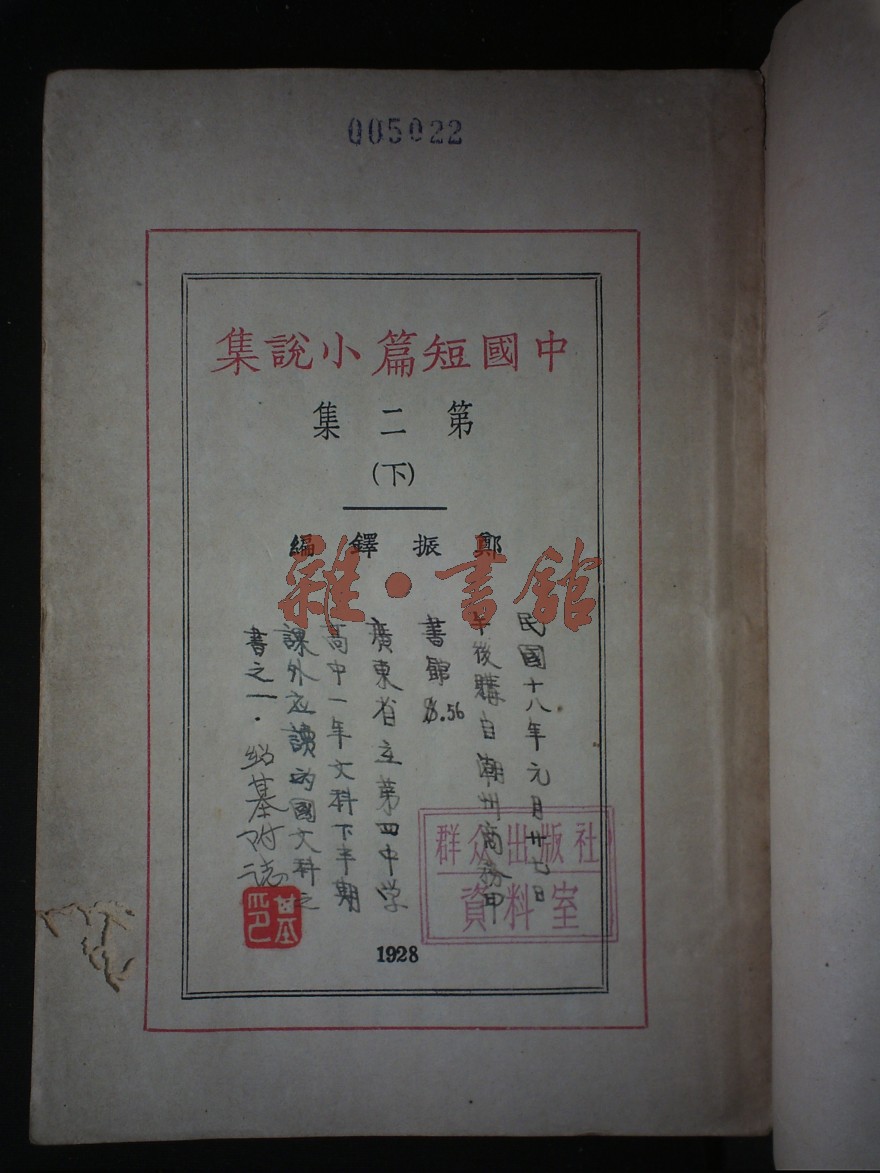 005022
中國短篇小說集
第二集
(下)
鄭振鐸編
雜·書館
民國十八年元月廿七日
午後購自潮州商務印
書館 $.56
廣東省立第四中学
高中一年文科下半期
課外应讀的國文科之
書之一.紹基附誌
群众出版社
資料室
1928